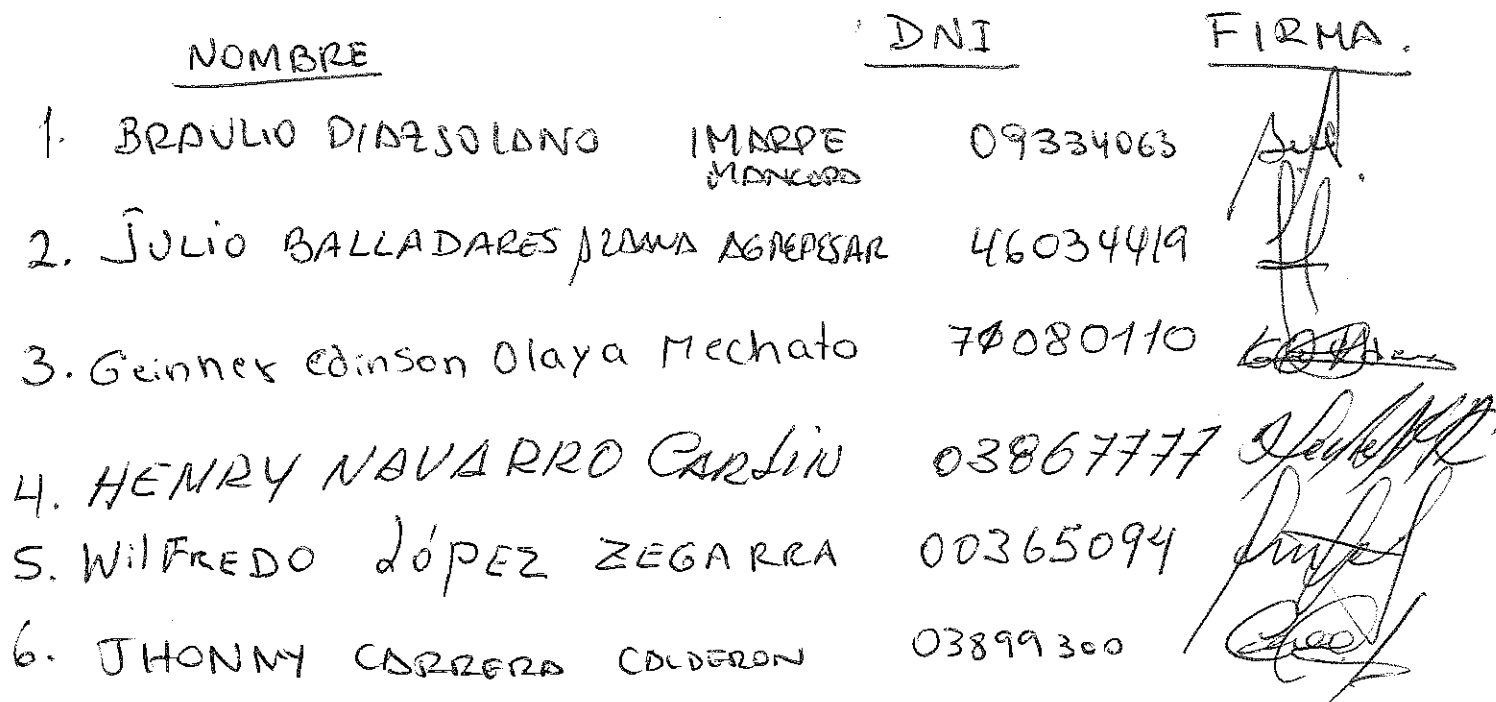 NOMBRE DNI FIRMA.
1. BRAULIO DIAZ SOLANO IMARPE 09334063
MANCORA
2. JULIO BALLADARES AGREPESAR 46034419
3. Geinner Edinson Olaya Mechato 080110
4. HENRY NAVARRO CARLIN 03867777
5. WilFREDO LÓPEZ ZEGARRA 00365094
6. JHONNY CARRERA CALDERON 03899300